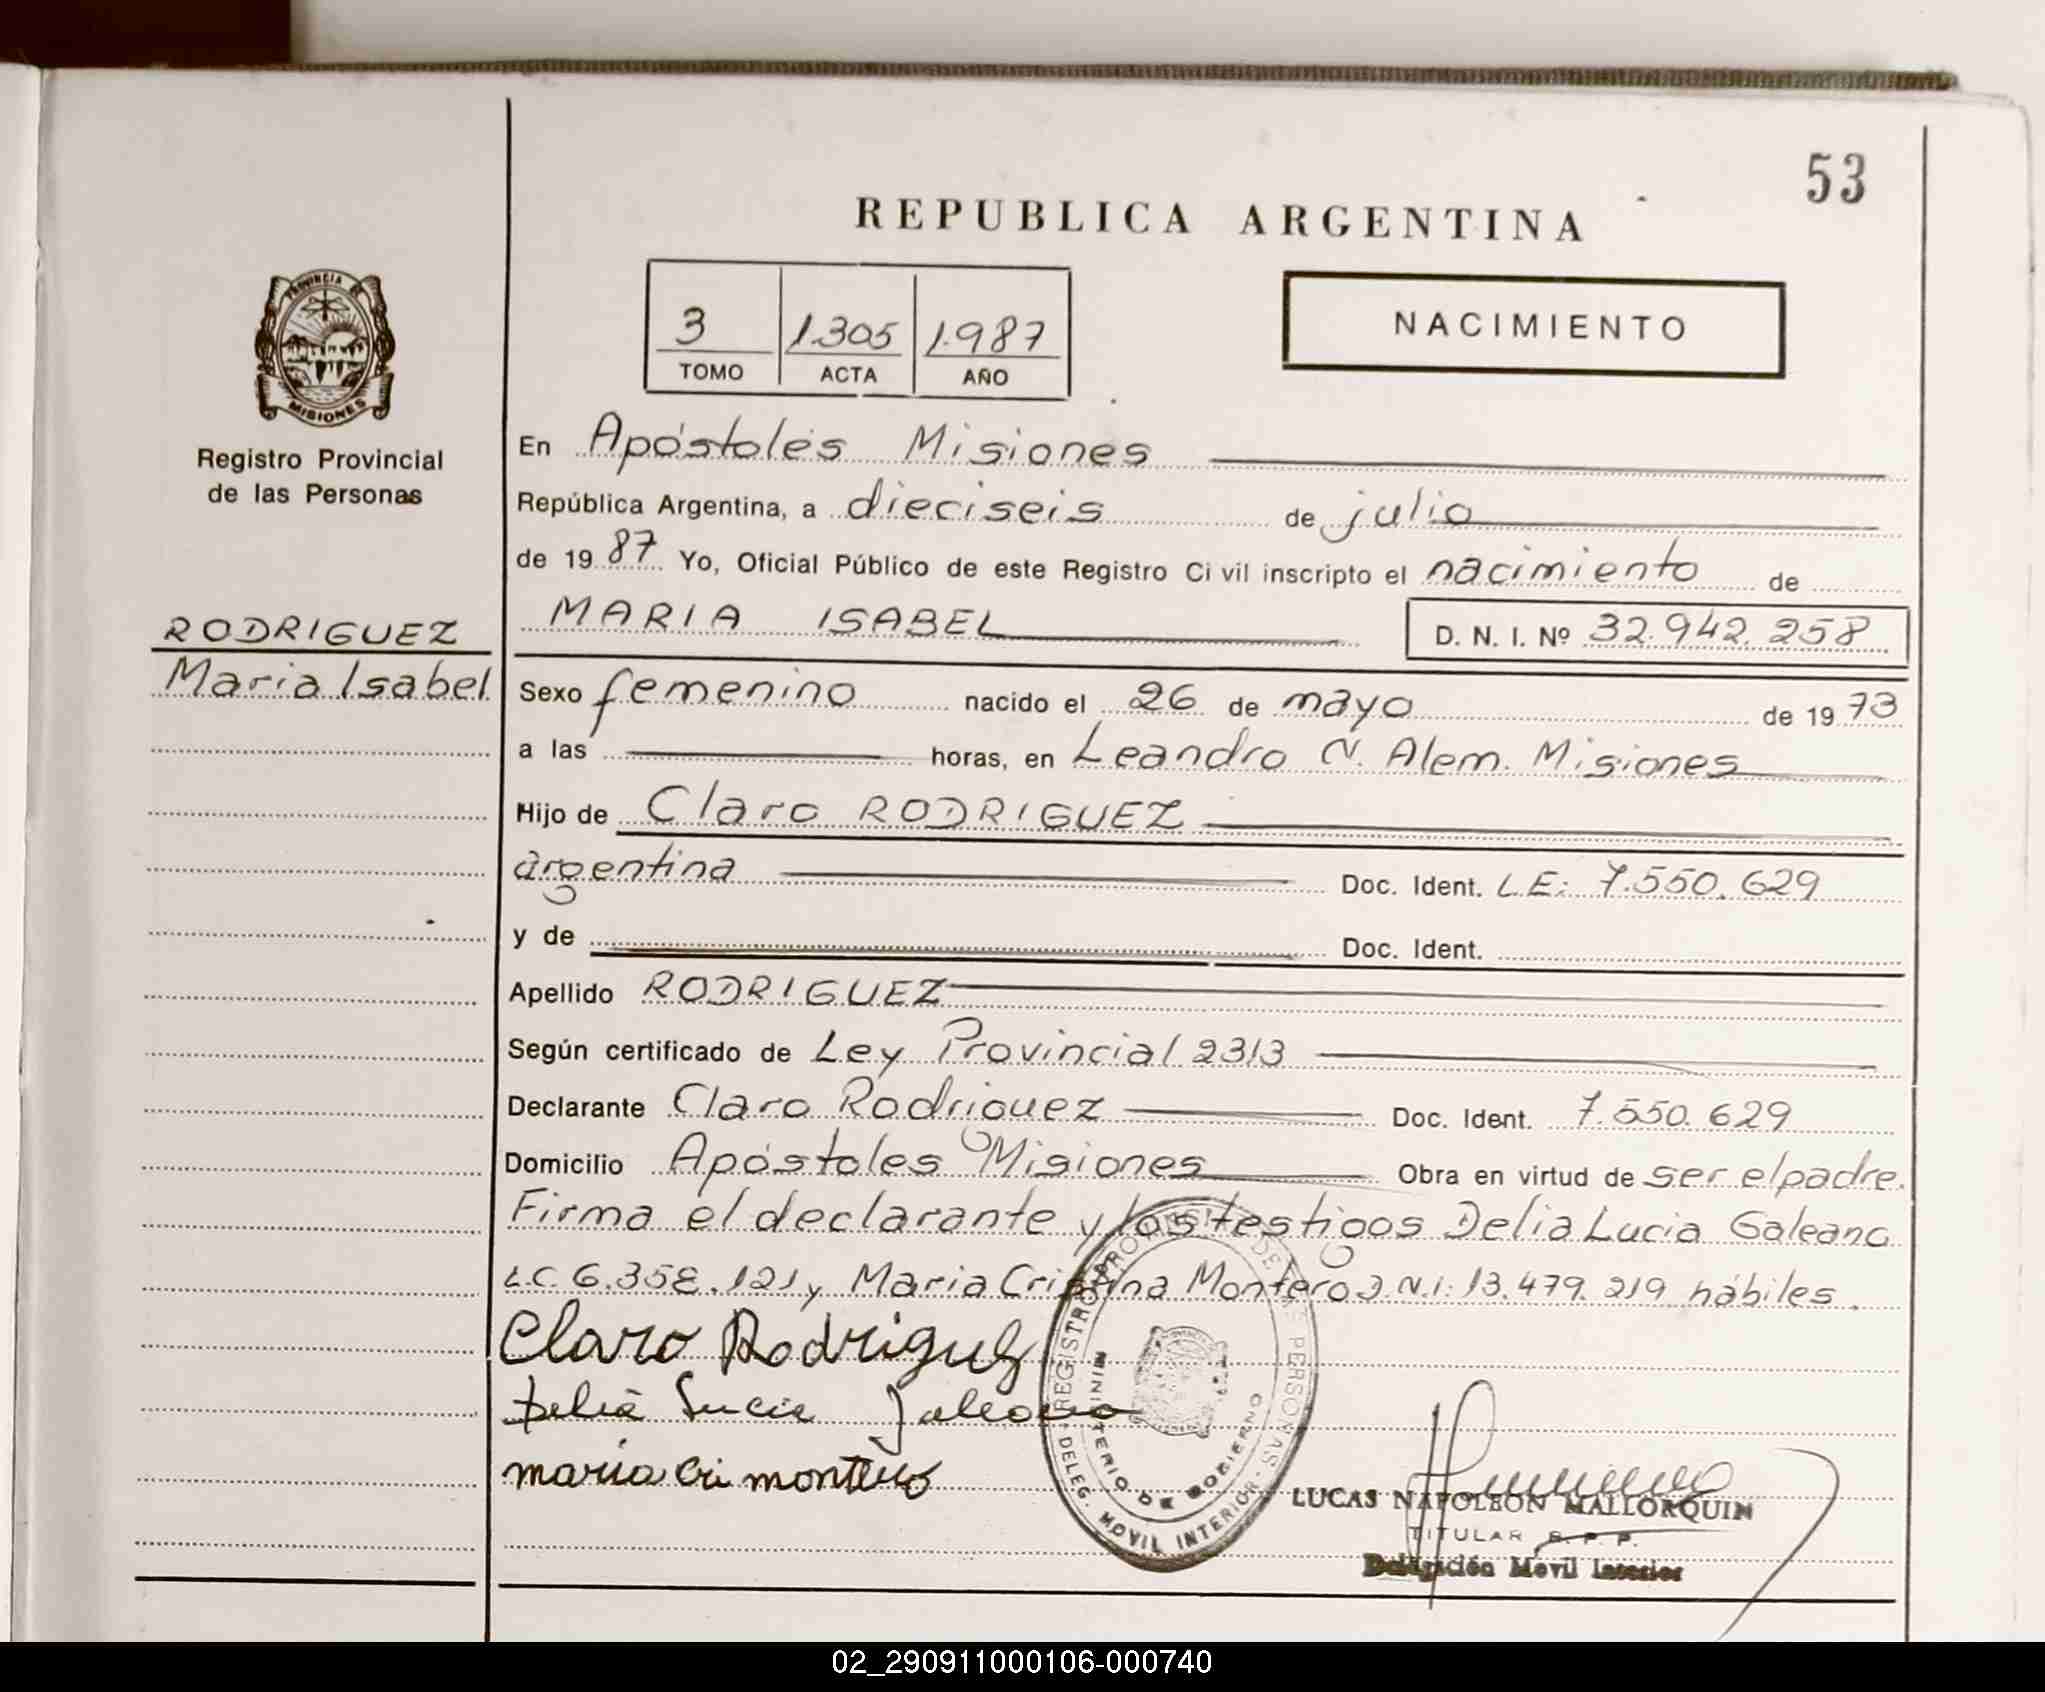 53
REPUBLICA ARGENTINA
PROVINCIA DE
MISIONES
Registro Provincial
de las Personas
3 1.305 1.987
TOMO ACTA AÑO
NACIMIENTO
En Apóstoles Misiones
República Argentina, a dieciseis de julio
de 19 87 Yo, Oficial Público de este Registro Civil inscripto el nacimiento de
MARIA ISABEL D. N. I. Nº 32.942.258
RODRIGUEZ
Maria Isabel
Sexo femenino nacido el 26 de mayo de 19 73
a las horas, en Leandro N. Alem. Misiones
Hijo de Claro RODRIGUEZ
argentina Doc. Ident. L.E: 7.550.629
y de Doc. Ident.
Apellido RODRIGUEZ
Según certificado de Ley Provincial 2313
Declarante Claro Rodriguez Doc. Ident. 7.550.629
Domicilio Apóstoles Misiones Obra en virtud de ser el padre.
Firma el declarante y los testigos Delia Lucia Galeano
L.C. 6.358.121 y Maria Cristina Montero D.N.I: 13.479.219 hábiles.
Claro Rodriguez
Delia Lucia Galeano
maria Cri montero
REGISTRO PROVINCIAL DE LAS PERSONAS
MINISTERIO DE GOBIERNO
DELEG. MOVIL INTERIOR
LUCAS NAPOLEON MALLORQUIN
TITULAR R. P. P.
Delegación Movil Interior
02_290911000106-000740